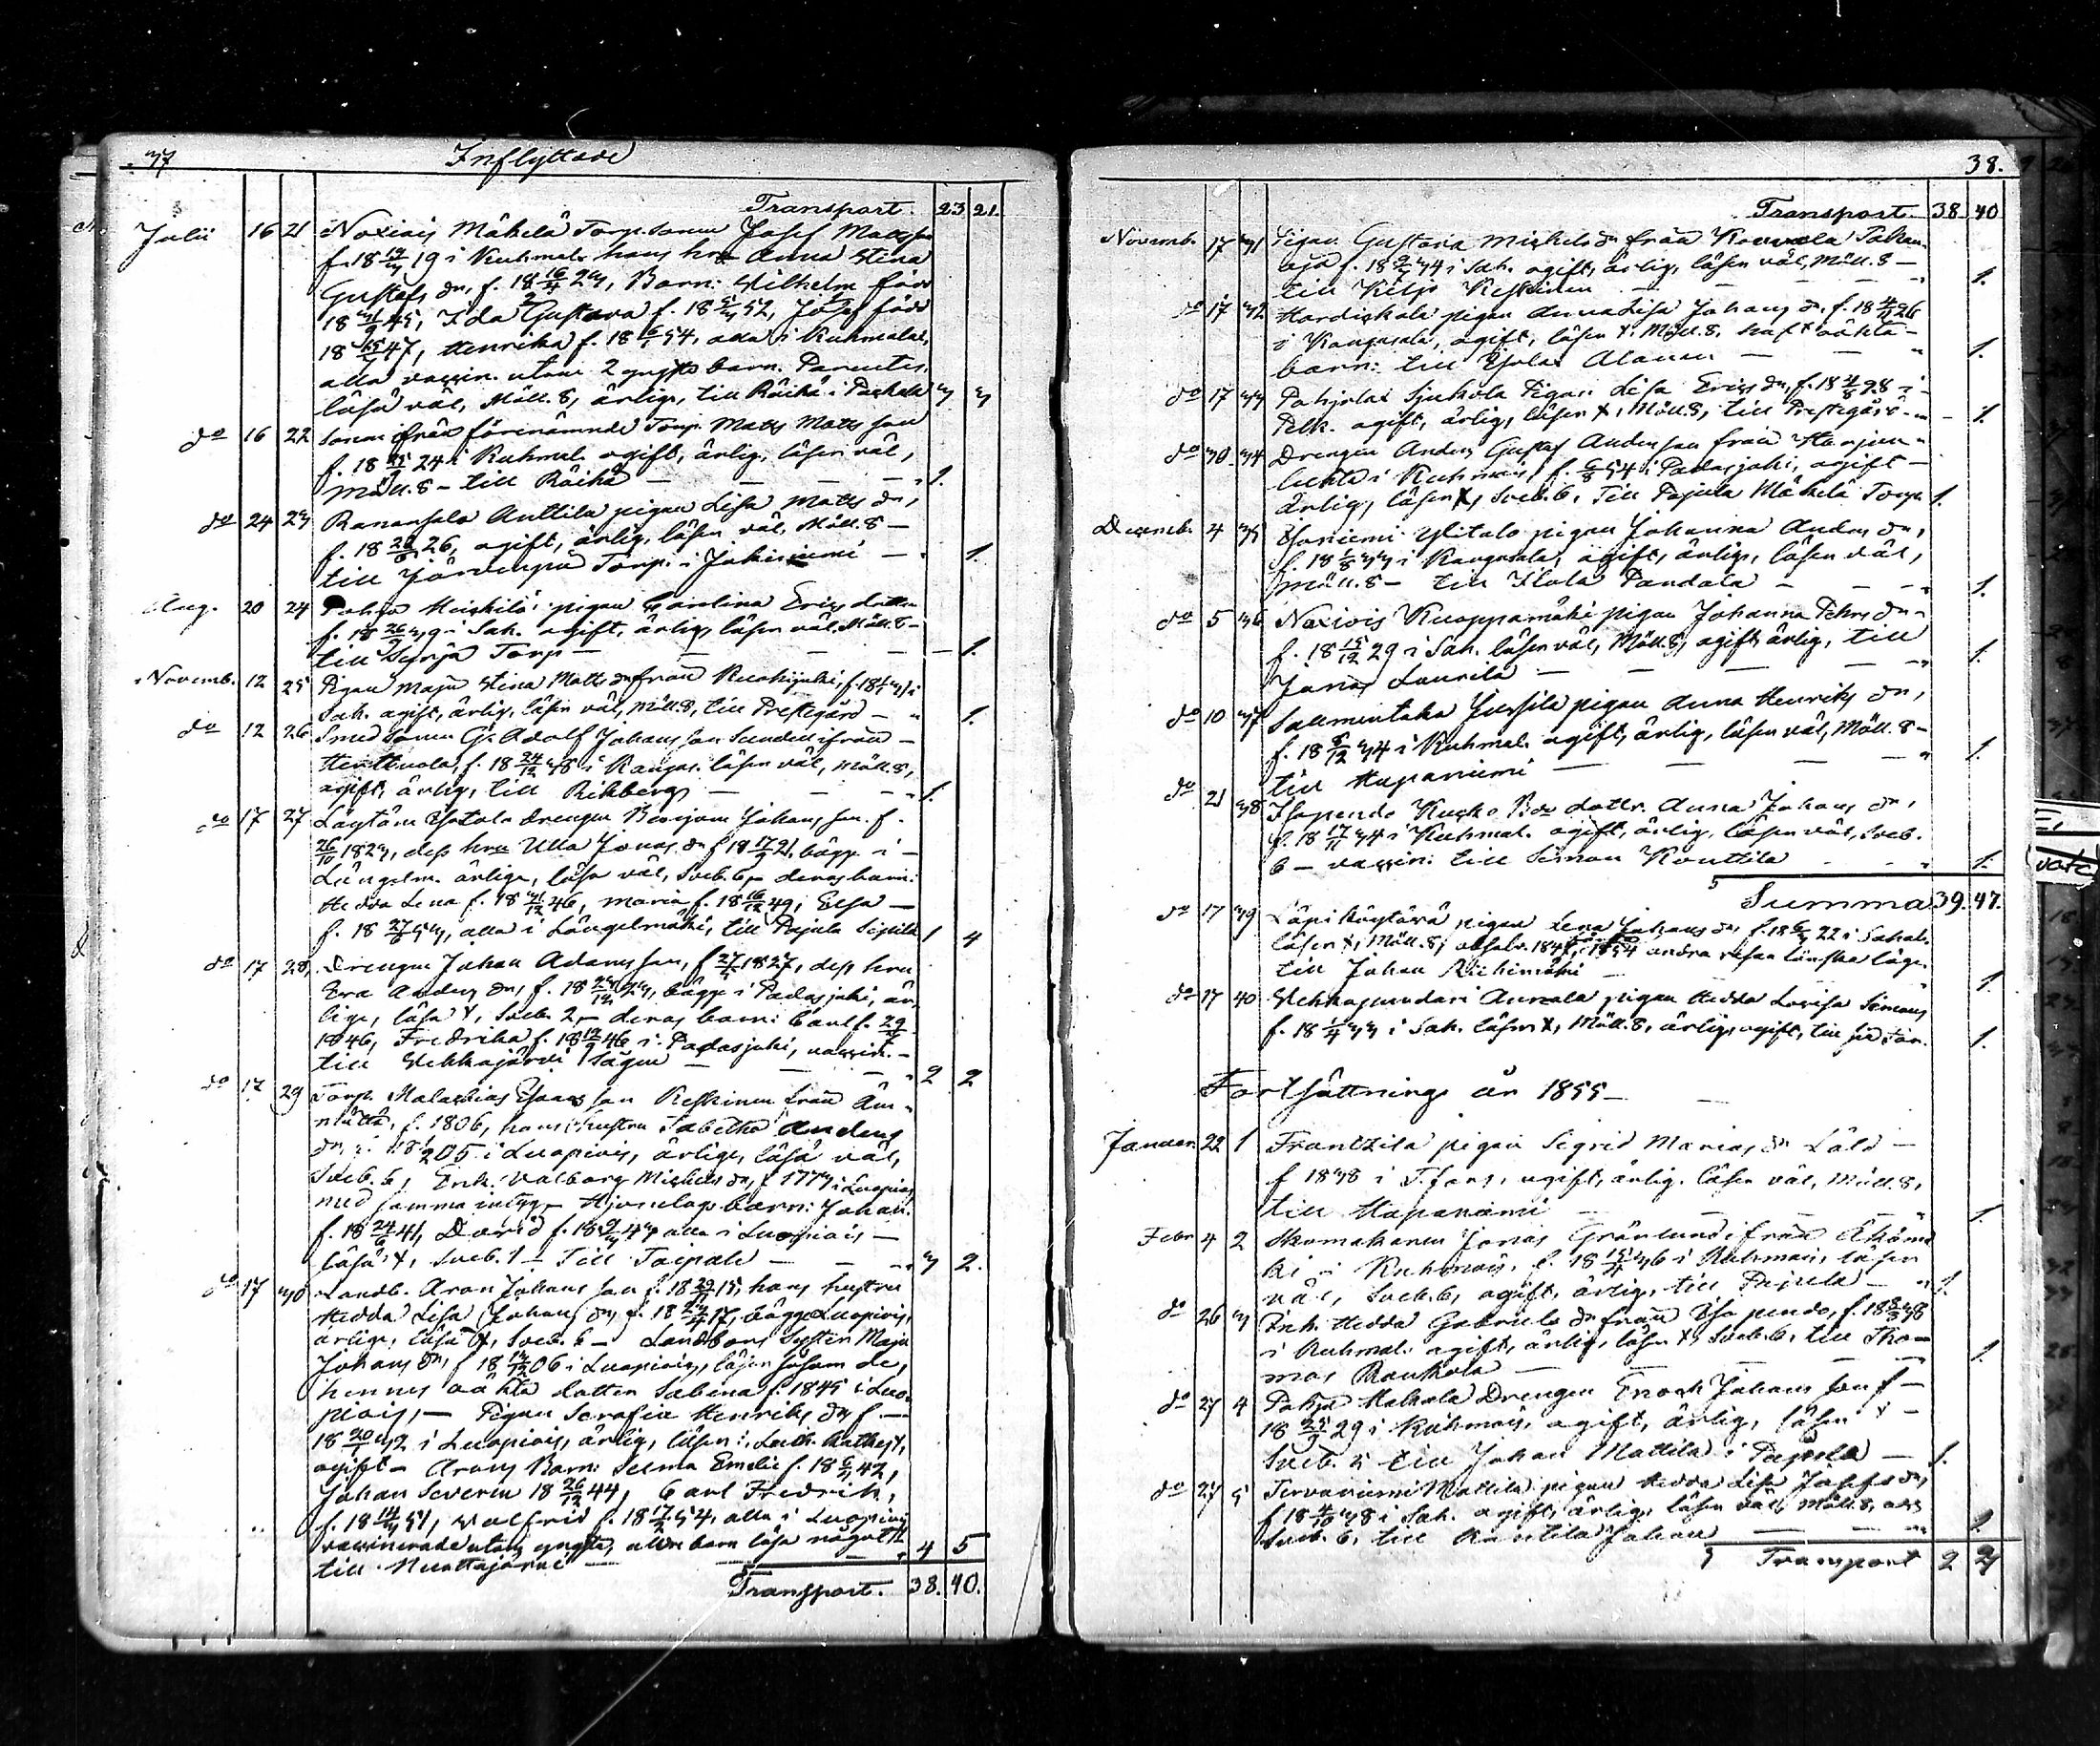 37 Inflyttade
Transport. 23 21.
Julii 16 21 Noxiais Mäkelä Torp. sonen Josef Matts son
f. 18 19 i Kuhmal. hans hru Anna Stina
Gustafs dr, f. 18 16/4 23, Barn: Wilhelm född
18 31/9 45, Ida Gustava f. 18 52, Josef född
18 47, Henrika f. 18 6/1 54, alla i Kuhmalax,
alla vaccin. utom 2 yngsta barn. Parentes
läsa väl, Möll. 8, ärlige, till Räihä i Packala 3 3
do 16 22 Sonen ifrån förenämnde Torp. Matts Matts son
f. 18 24 i Kuhmal. ogift, ärlig, läser väl,
Möll. 8 - till Räihä - - - 1.
do 24 23 Anttila pigan Lisa Matts dr,
f. 18 26, ogift, ärlig, läser väl, Möll. 8 -
till Järvenpää Torp. i - 1.
Aug. 20 24 Pohja Heickilä pigan Carolina Erics dotter
f. 18 26/9 39 i Sah. ogift, ärlig, läser väl. Möll. 8 -
till Torp - - - - 1.
Novemb. 12 25 Pigan Maja Stina Matts dr från f. 18 31 i
Sah. ogift, ärlig, läser väl, Möll. 8, till Prestegård - 1.
do 12 26 Smed sonen G. Adolf Johans son ifrån -
f. 18 24/12 38 i Kangas. läser väl, Möll. 8,
ogift, ärlig, till Rikberg - - - 1.
do 17 27 drengen Benjam Johans son f.
26/10 1823, dess hru Ulla Jonas dr f 18 17/9 21, bägge i -
Längelm. ärlige, läsa väl, Sveb. 6, deras barn:
Hedda Lena f. 18 31/12 46, Maria f. 18 16/12 49, Elsa -
f. 18 27/6 53, alla i Längelmäki, till Pajula Seppälä 1 4
do 17 28 Drengen Johan Adams son, f. 27/4 1827, dess hru
Eva Anders dr, f. 18 23, bägge i Padasjoki, är-
lige, läsa x, Sveb. 2, deras barn: Carl f. 29
1846, Fredrika f. 18 12/9 46 i Padasjoki, vaccin. -
till Vehkajärvi Sågen - - 2 2
do 17 29 Torp. Malachias Esaias son Keskinen från
f. 1806, hans hustru Sabetha Anders
dr, 1805 i Luopiois, ärlige, läsa väl,
Sveb. 6, Enk. Valborg Michels dr, f 1773 i Luopiois
med samma intyg - Hjonelags barn: Johan
f. 18 24/6 41, David f. 18 43 alla i Luopiois -
läsa x, Sveb. 1 - Till Taipale - - 3 2.
do 17 30 Landb. Aron Johans son f. 18 29 15, hans hustru
Hedda Lisa Johans dr, f. 18 17, bägge Luopiois,
ärlige, läsa x, Sveb. 6 - Landbons Syster Maja
Johans dr, f 18 06 i Luopiois, läser såsom de,
hennes oäkta dotter Sabina f. 1845 i Luo-
piois, - Pigan Serafia Henriks dr f -
18 20/1 32 i Luopiois, ärlig, läser i. Luth. Kathes,
ogift - Arons Barn: Selma Emelie f. 18 6/3 42,
Johan Severin 18 26/12 44, Carl Fredrik,
f. 18 14/3 51, Valfrid f. 18 17/2 54, alla i Luopiois
vaccinerade utom yngsta, äldre barn läsa något
till - 4 5
Transport. 38. 40.
38.
Transport. 38. 40
Novemb. 17 31 Pigan Gustava Michels dr från
f. 18 34 i Sah. ogift, ärlig, läser väl, Möll. 8 -
till Keskinen - - - 1.
do 17 32 pigan Anna Lisa Johans dr, f. 18 26
i Kangasala, ogift, läser x. Möll. 8, haft oäkta -
barn: till Alanen - - 1.
do 17 33 Sjukola Pigan Lisa Erics dr, f. 18 28 i
Pelk. ogift, ärlig, läser x, Möll. 8, till Prestegård - 1.
do 30 34 Drengen Anders Gustaf Anders son från
i Kuhmois, f. 6/8 54 i Padasjoki, ogift -
ärlig, läser x, Sveb. 6, Till Pajula Mäkelä Torp 1.
Decemb. 4 35 Ylitalo pigan Johanna Anders dr,
f. 18 1/8 33 i Kangasala, ogift, ärlig, läser väl,
Möll. 8 - till Pandala - - 1.
do 5 36 Noxiois Kuoppamäki pigan Johanna Pehrs dr -
f. 18 15/12 29 i Sah. läser väl, Möll. 8, ogift, ärlig, till
Laurila - - - 1.
do 10 37 Salmentaka Jussila pigan Anna Henriks dr,
f. 18 8/12 34 i Kuhmal. ogift, ärlig, läser väl, Möll. 8 -
till Haapaniemi - - - 1.
do 21 38 Isopendo Kusko dottr. Anna Johans dr,
f. 18 17/11 34 i Kuhmal. ogift, ärlig, läser väl, Sveb.
6 - vaccin: till Simon Kouttila - - 1.
Summa 39. 47.
do 17 39 pigan Lena Johans dr f. 18 22 i Sahal.
läser x, Möll. 8, absolv. 1847, 1854 andra resan
till Johan Riihimäki - 1
do 17 40 Vehkapundari Annala pigan Hedda Lovisa Simons
f. 18 1/4 33 i Sah. läser x, Möll. 8, ärlig, ogift, till 1.
Fortsättning år 1855 -
Januar. 22 1 Frantzila pigan Sigrid Marias dr -
f 1838 i T.fors, ogift, ärlig, läser väl, Möll. 8,
till Haapaniemi - - 1.
Febr 4 2 Skomakaren Jonas Grönlund ifrån
i Kuhmois, f. 18 36 i Kuhmois, läser
väl, Sveb. 6, ogift, ärlig, till Pajula - 1.
do 26 3 Enk. Hedda Gabriels dr från Isopendo, f. 18 38
i Kuhmal. ogift, ärlig, läser x, Sveb. 6, till Tho-
mas Raukola - - 1.
do 27 4 Pohja Makala Drengen Enoch Johans son f -
18 25/9 29 i Kuhmois, ogift, ärlig, läser x -
Sveb. 5 till Johan Mattila i Pajula - 1.
do 27 5 Tervaniemi Mattila pigan Hedda Lisa Josefs dr,
f 18 4/10 38 i Sah. ogift, ärlig, läser väl, Möll. 8, och
Sveb. 6, till Anttila Johan - - 1.
Transport 2 3